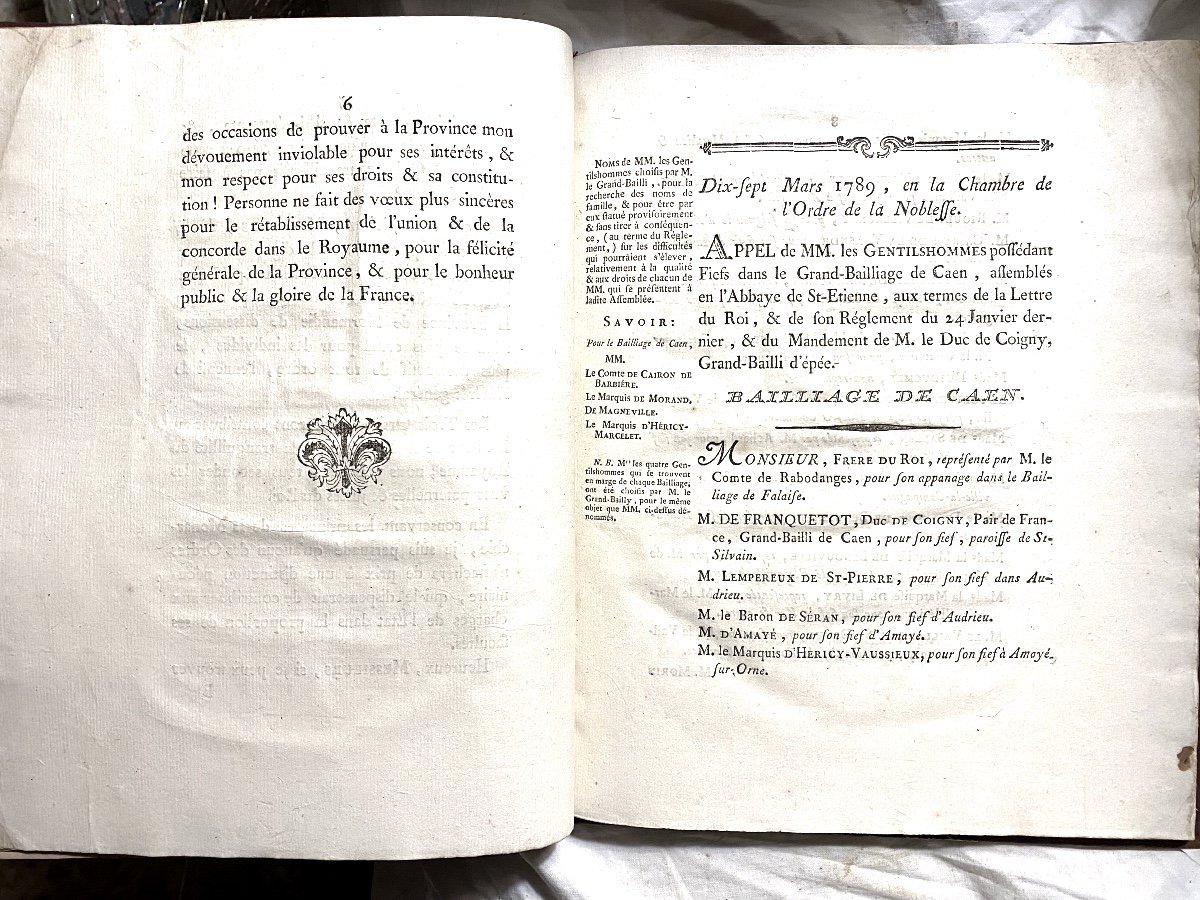 6
des occasions de prouver à la Province mon
dévouement inviolable pour ses intérêts, &
mon respect pour ses droits & sa constitu-
tion ! Personne ne fait des vœux plus sincères
pour le rétablissement de l'union & de la
concorde dans le Royaume, pour la félicité
générale de la Province, & pour le bonheur
public & la gloire de la France.
Noms de MM. les Gen-
tilshommes choiſis par M.
le Grand-Bailli, pour la
recherche des noms de
famille, & pour être par
eux ſtatué proviſoirement
& ſans tirer à conſéquen-
ce, (au terme du Régle-
ment,) ſur les difficultés
qui pourraient s'élever,
relativement à la qualité
& aux droits de chacun de
MM. qui ſe préſentent à
ladite Aſſemblée.
SAVOIR:
Pour le Bailliage de Caen,
MM.
Le Comte DE CAIRON DE
BARBIÈRE.
Le Marquis DE MORAND,
DE MAGNEVILLE.
Le Marquis D'HÉRICY-
MARCELET.
N. B. Mrs les quatre Gen-
tilshommes qui ſe trouvent
en marge de chaque Bailliage,
ont été choiſis par M. le
Grand-Bailly, pour le même
objet que MM. ci-deſſus dé-
nommés.
Dix-ſept Mars 1789, en la Chambre de
l'Ordre de la Nobleſſe.
APPEL de MM. les GENTILSHOMMES poſſédant
Fiefs dans le Grand-Bailliage de Caen, aſſemblés
en l'Abbaye de St-Etienne, aux termes de la Lettre
du Roi, & de ſon Réglement du 24 Janvier der-
nier, & du Mandement de M. le Duc de Coigny,
Grand-Bailli d'épée.
BAILLIAGE DE CAEN.
MONSIEUR, FRERE DU ROI, repréſenté par M. le
Comte de Rabodanges, pour ſon appanage dans le Bail-
liage de Falaiſe.
M. DE FRANQUETOT, Duc DE COIGNY, Pair de Fran-
ce, Grand-Bailli de Caen, pour ſon fief, paroiſſe de St-
Silvain.
M. LEMPEREUX DE ST-PIERRE, pour ſon fief dans Au-
drieu.
M. le Baron DE SÉRAN, pour ſon fief d'Audrieu.
M. D'AMAYÉ, pour ſon fief d'Amayé.
M. le Marquis D'HÉRICY-VAUSSIEUX, pour ſon fief à Amayé-
ſur-Orne.